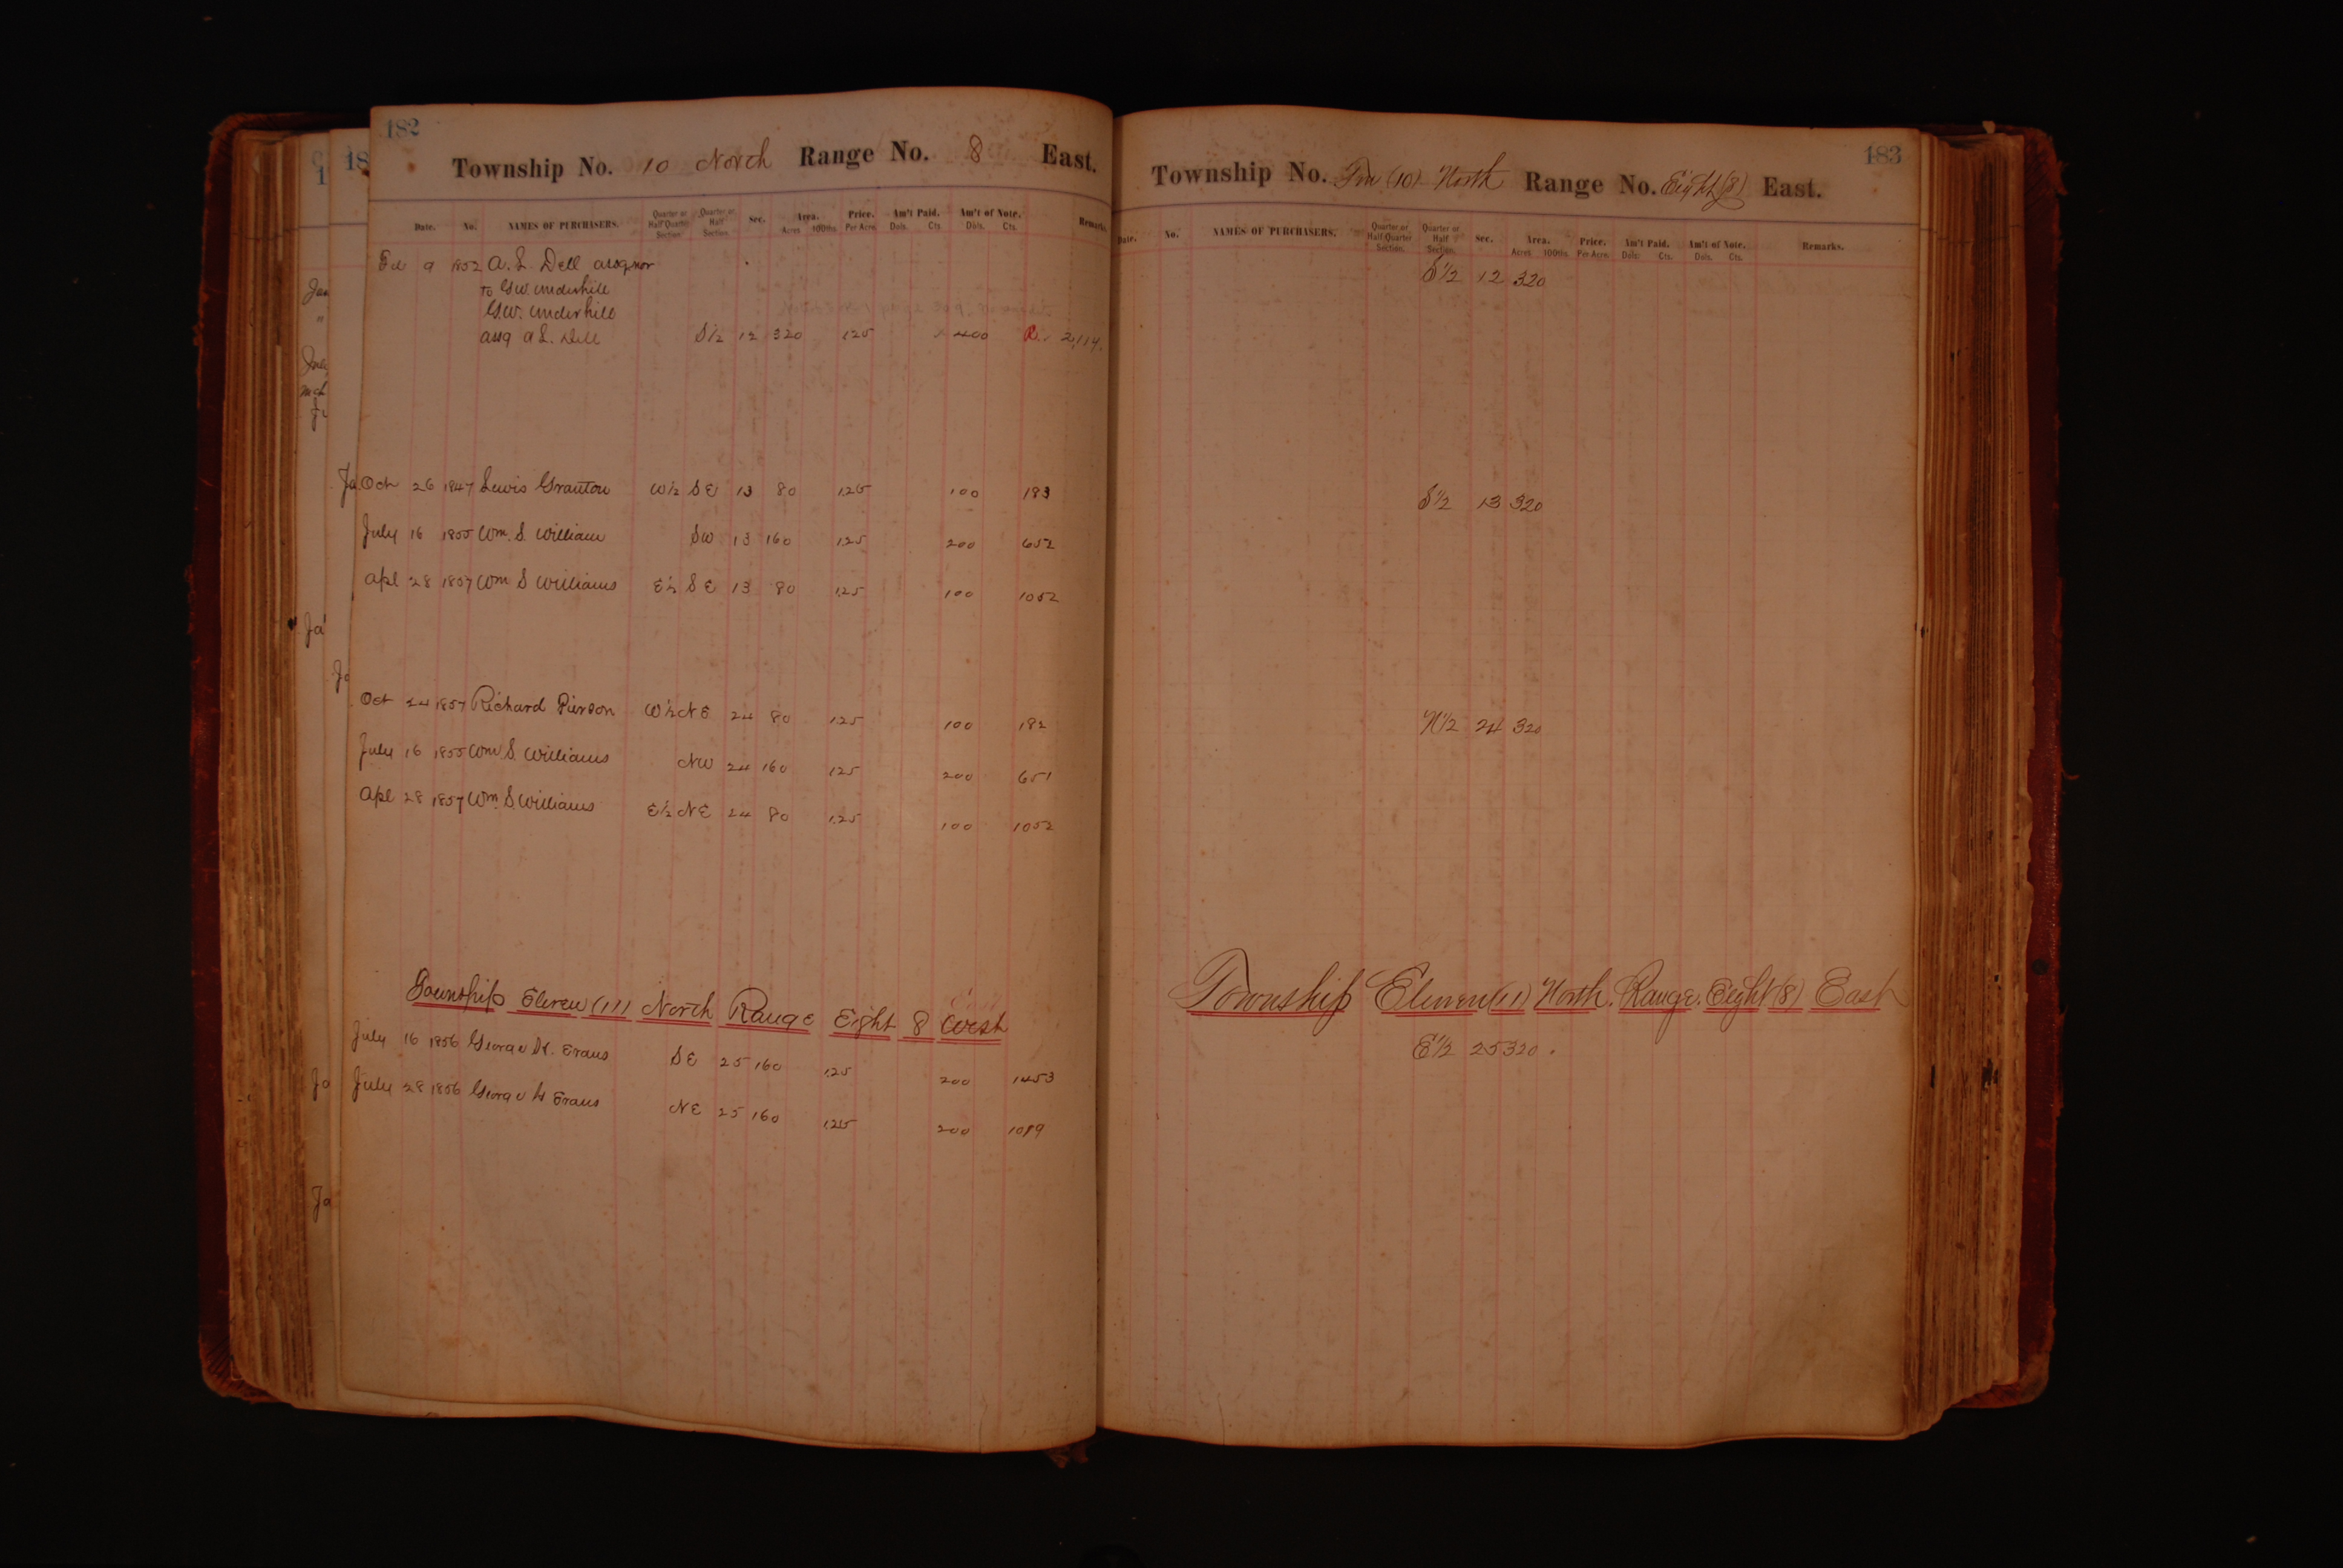 182
Township No. 10 North Range No. 8 East.
Date. No. NAMES OF PURCHASERS. Quarter or Half Quarter Section. Quarter or Half Section. Sec. Area. Acres 100ths Price. Per Acre. Am't Paid. Dols. Cts. Am't of Note. Dols. Cts. Remarks.
9 1852 A. L. Dell assignor
To G.W. Underhill
G.W. Underhill
assg A L. Dell S½ 12 320 125 400 R. 2,114.
Oct 26 1847 Lewis W½ SE 13 80 125 100 183
July 16 1855 Wm. S. William SW 13 160 125 200 652
Apl 28 1857 Wm S Williams E½ SE 13 80 125 100 1052
Oct 24 1857 Richard Pierson W½ NE 24 80 125 100 182
July 16 1855 Wm. S. Williams NW 24 160 125 200 651
Apl 28 1857 Wm. S. Williams E½ NE 24 80 125 100 1052
East
Township Eleven (11) North Range Eight 8 West
July 16 1856 George H. Evans SE 25 160 125 200 1453
July 28 1856 George H Evans NE 25 160 125 200 1019
183
Township No. Ten (10) North Range No. Eight (8) East.
Date. No. NAMES OF PURCHASERS. Quarter or Half Quarter Section. Quarter or Half Section. Sec. Area. Acres 100ths Price. Per Acre. Am't Paid. Dols. Cts. Am't of Note. Dols. Cts. Remarks.
S½ 12 320
S½ 13 320
N½ 24 320
Township Eleven (11) North. Range. Eight (8) East
E½ 25 320.